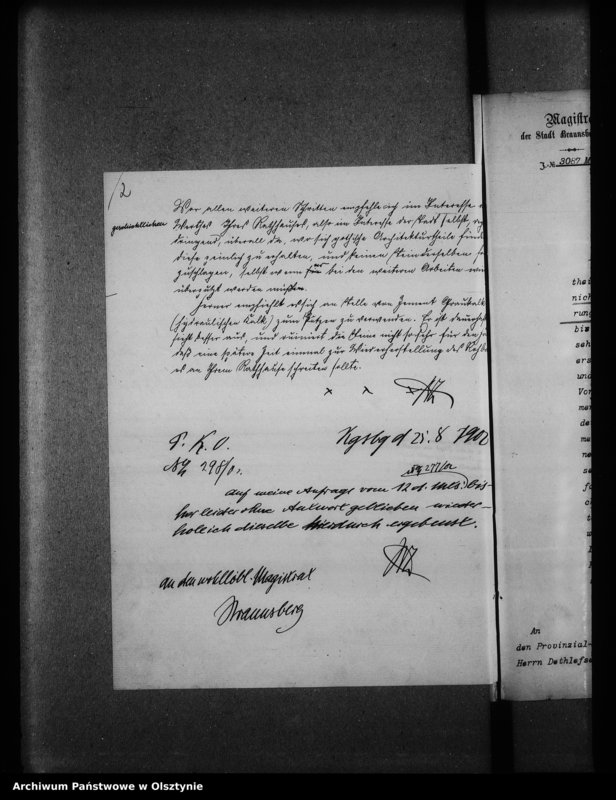 2
Vor allen weiteren Schritten empfehle ich im Interesse
geschichtlichen
Werthes Ihres Rathhauses, also im Interesse der Stadt selbst,
dringend, überall da, wo sich gothische Architekturtheile
diese peinlich zu erhalten, und keinen Stein derselben
zuschlagen, selbst wenn bei den weiteren Arbeiten
überputzt werden müssen.
Ferner empfiehlt es sich an Stelle von Cement Graukalk
(hydraulischen Kalk) zum Putzen zu verwenden. Er ist
sieht besser aus, und ruinirt die Steine nicht so sehr für den
daß eine spätere Zeit einmal zur Wiederherstellung des
es an Ihrem Rathhause schreiten sollte.
x x x
P. K. O.
Kgsbg d 25. 8 1902
No 298/02
No 277/02
Auf meine Anfrage vom 12 d. Mts. bis-
her leider ohne Antwort geblieben wieder-
hole ich dieselbe hierdurch ergebenst.
An den wohllöbl. Magistrat
Braunsberg
Magistra
der Stadt Braunsb
J.-No 3087 M
thei
nich
rung
bis
seh
ers
und
Vor
men
de
me
se
An
den Provinzial-
Herrn Dethlefse
Archiwum Państwowe w Olsztynie